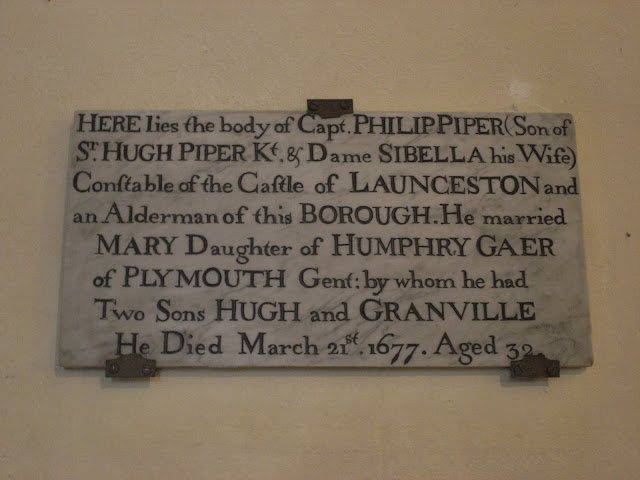 HERE lies the body of Capt. PHILIP PIPER (Son of
Sr. HUGH PIPER Kt. & Dame SIBELLA his Wife)
Conſtable of the Caſtle of LAUNCESTON and
an Alderman of this BOROUGH. He married
MARY Daughter of HUMPHRY GAER
of PLYMOUTH Gent: by whom he had
Two Sons HUGH and GRANVILLE
He Died March 21st. 1677. Aged 32